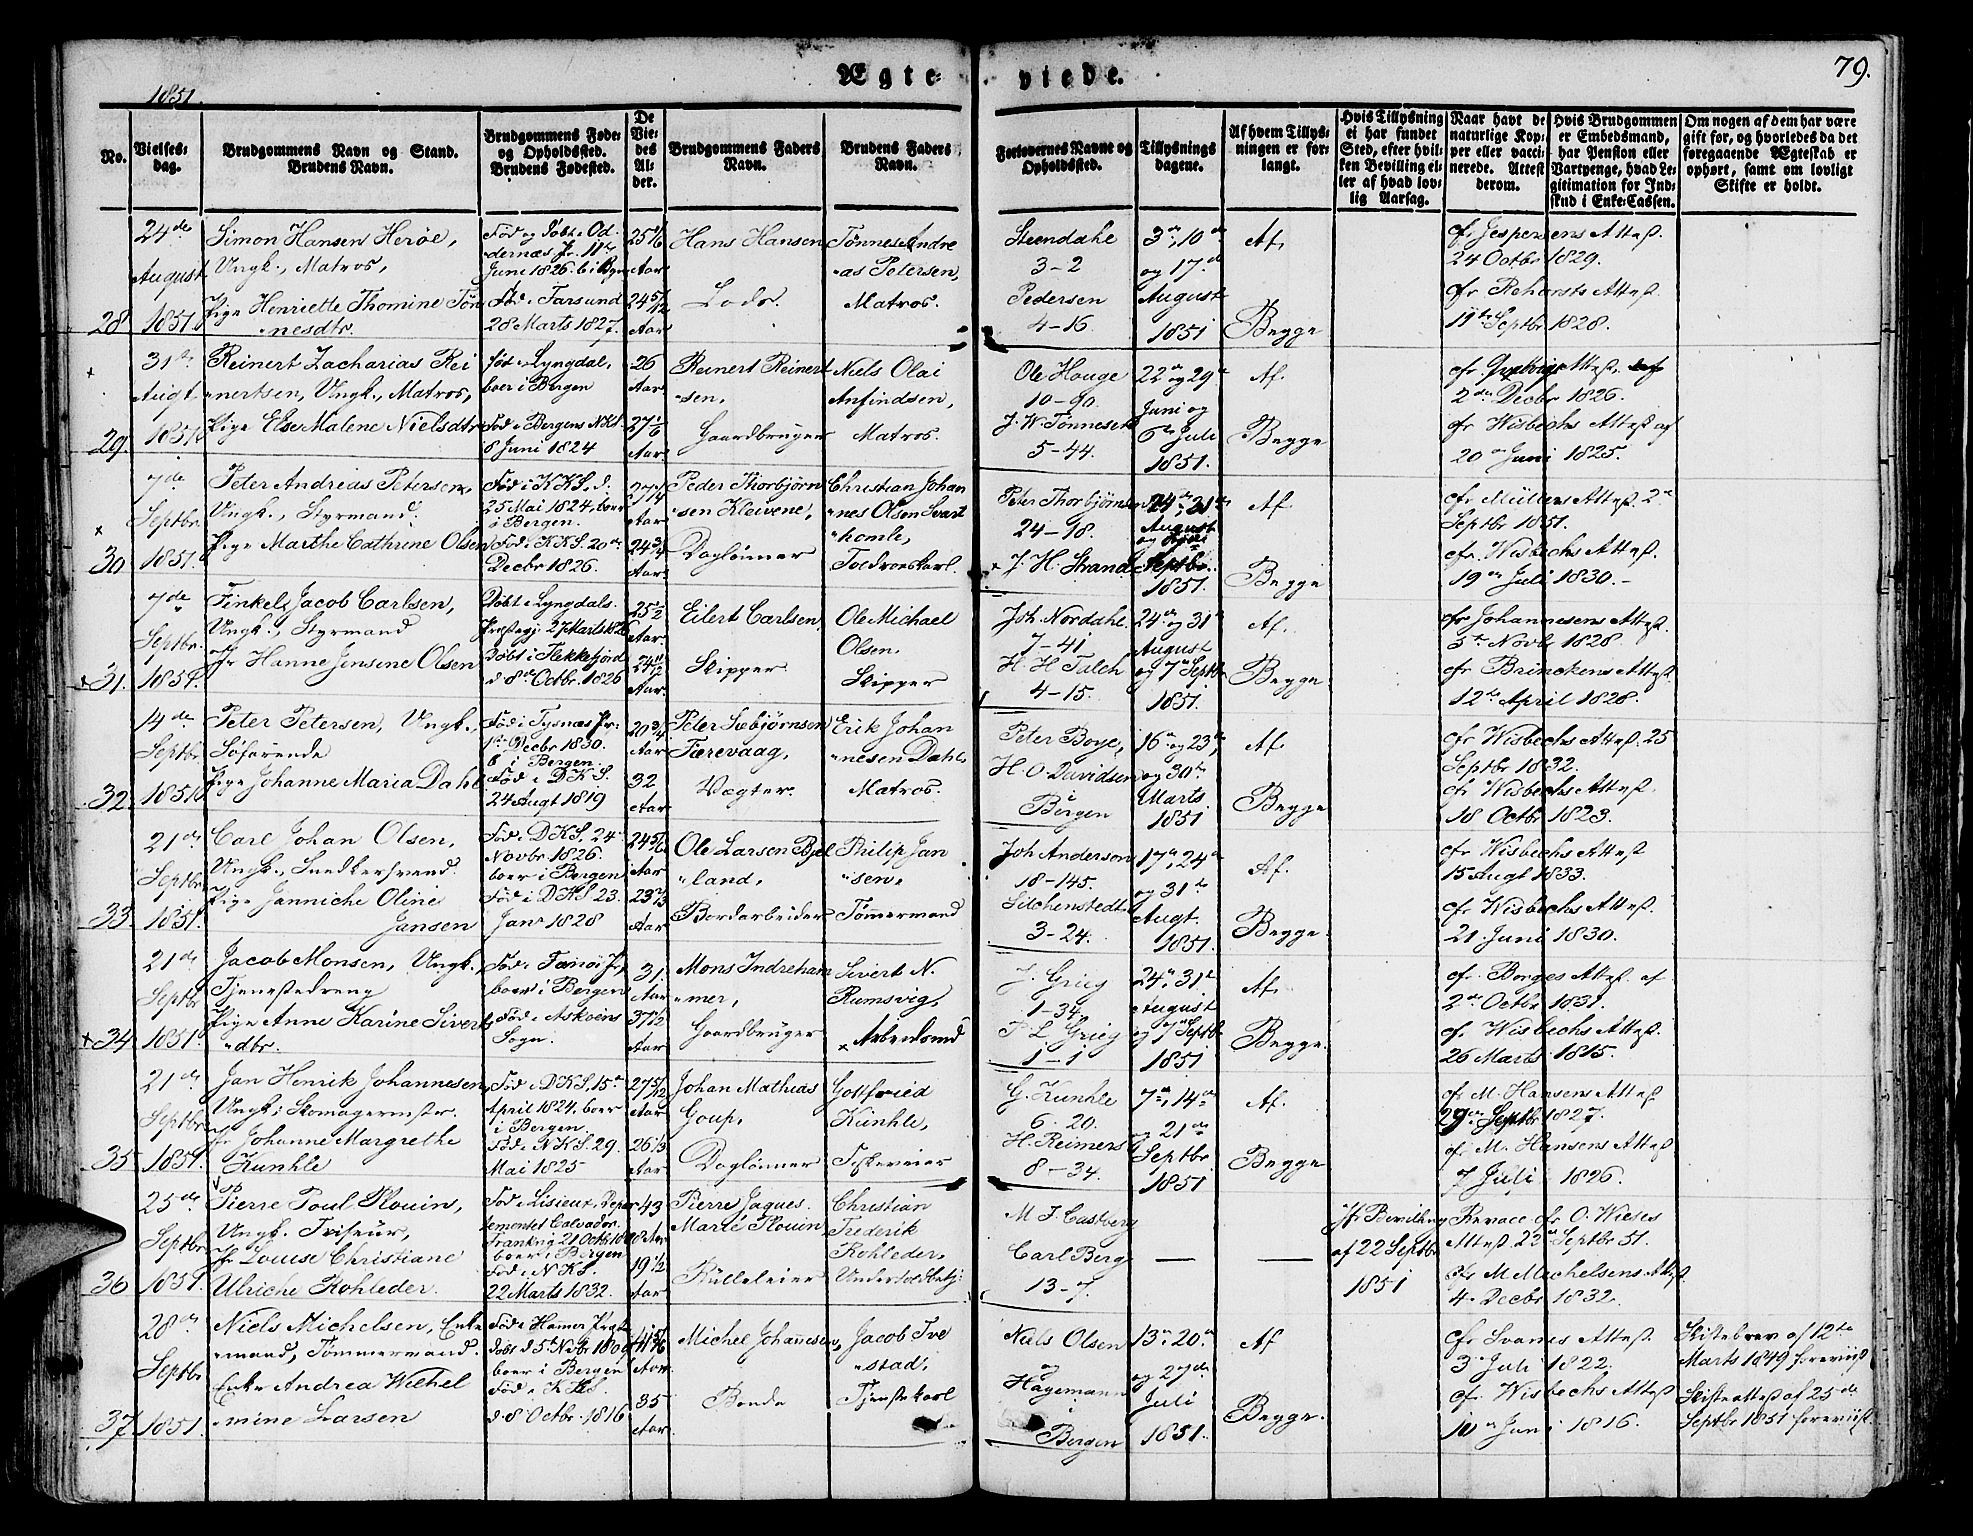 79.
Ægte-viede.
1851.
No.
Vielses-
dag.
Brudgommens Navn og Stand.
Brudens Navn.
Brudgommens Føde-
og Opholdssted.
Brudens Fødested.
De
Vie-
des
Al-
der.
Brudgommens Faders
Navn.
Brudens Faders
Navn.
Forlovernes Navne og
Opholdssted.
Tillysnings
dagene.
Af hvem Tillys-
ningen er for-
langt.
Hvis Tillysning
ei har fundet
Sted, efter hvil-
ken Bevilling el-
ler af hvad lov-
lig Aarsag.
Naar havt de
naturlige Kop-
per eller vacci-
nerede. Attest
derom.
Hvis Brudgommen
er Embedsmand,
har Pension eller
Vartpenge, hvad Le-
gitimation for Ind-
skud i Enke-Cassen.
Om nogen af dem har være
gift før, og hvorledes da det
foregaaende Ægteskab er
ophørt, samt om lovligt
Skifte er holdt.
28.
24de
August
1851.
Simon Hansen Herøe,
Ungk., Matros,
Pige Henriette Thomine Tøn
nesdtr.
Juni 1826. b. i Bgn
Fød i Farsund
28 Marts 1827.
25 1/6
Aar
24 5/12
Aar
Hans Hansen
Lods.
Tønnes Andre
as Petersen,
Matros.
Steendahl
3-2
Pedersen
4-16.
3de, 10de
og 17de
August
1851
Af
Begge
cfr Jespersens Attest.
24 Octbr 1829.
cfr Rehorsts Attest
11te Septbr 1828.
29.
31te
Augt.
1851.
Reinert Zacharias Rei
nertsen, Ungk., Matros,
Pige Else Malene Nielsdtr
Født i Lyngdal,
boer i Bergen
Fød i Bergens NKS
8 Juni 1824
26
Aar
27 1/6
Aar
Reinert Reinert
sen,
Gaardbruger
Niels Olai
Anfindsen,
Matros.
Ole Houge
10-90.
J. W. Tønnesen
5-44.
22de og 29de
Juni og
6te Juli
1851.
Af.
Begge
2den Decbr 1826.
cfr Wisbechs Attest af
20de Juni 1825.
30
7de
Septbr
1851.
Peter Andreas Petersen,
Ungk., Styrmand.
Pige Marthe Cathrine Olsen
Fød i KKS. d.
25 Mai 1824, boer
i Bergen.
Fød i KKS. 20de
Decbr 1826.
27 1/4
Aar
24 3/4
Aar
Peder Thorbjørn
sen Kleivene,
Daglønner
Christian Johan
nes Olsen Svart
homle,
Peter Thorbjørnsen
24-18.
J. H. Strand
August
Septbr.
1851.
Af
Begge
cfr Müllers Attest 2de
Septbr 1851.
cfr. Wisbechs Attest.
19de Juli 1830.-
31.
7de
Septbr.
1851.
Jacob Carlsen,
Ungk., Styrmand
Jfr Hanne Jensene Olsen
Døbt i Lyngdals.
Døbt i Flekkefjord
d 8de Octbr. 1826
25 1/2
Aar.
24 11/12
Aar.
Eilert Carlsen,
Skipper
Ole Michael
Olsen.
Skipper
Joh. Nordahl
7-41
H. H. Falch
4-15.
24de og 31te
August
og 7de Septbr
1851.
Af.
Begge.
cfr Johannesens Attest.
5te Novb 1828.
cfr Brinckens Attest.
12te April 1828.
32.
14de
Septbr
1851
Peter Petersen, Ungk.,
Søfarende
Pige Johanne Maria Dahl
Fød i Tysnæs Pr.
1ste Decbr 1830.
B i Bergen.
Fød i DKS.
24 Augt 1819
20 3/4
Aar
32
Aar
Peter Sæbjørnsen
Færevaag,
Vægter.
Erik Johan
nesen Dahl,
Matros.
Peter Boye,
H. O. Davidsen
i
Bergen
16de og 23de,
og 30te
Marts
1851
Af
Begge
cfr Wisbechs Attest. 25
Septbr 1832.
cfr Wisbechs Attest.
18 Octbr 1823.
33.
21de
Septbr
1851.
Carl Johan Olsen,
Ungk., Snedkersvend.
Pige Janniche Oline
Jansen
Fød i DKS. 24
Novbr 1826.
boer i Bergen
Fød i DKS 23.
Janr 1828
24 5/6
Aar
23 2/3
Aar
Ole Larsen Bjel
land,
Bordarbeider
Philip Jan
sen,
Tømmermand
Joh Anderson
18-145.
Lilchenstedt
3-24.
17de, 24de
og 31te
Augt.
1851.
Af.
Begge.
cfr Wisbechs Attest
15 Augt 1833.
cfr Wisbechs Attest.
21. Juni 1830.
34
21de
Septbr
1851.
Jacob Monsen, Ungk.,
Tjenestedreng
Pige Anne Karine Sivert
dtr.
boer i Bergen
Fød i Askøens
Sogn.
31.
Aar
37 1/2
Aar
Mons Indreham
mer,
Gaardbruger
Sivert N.
Rumsvig,
Arbeidsmd
J. Grieg
1-34.
1-1
24de, 31te
August
og 7de Septbr
1851
Af.
Begge.
cfr. Borges Attest. af
2de Octbr 1831.
cfr Wisbechs Attest.
26 Marts 1815.
35
21de
Septbr
1851.
Jan Henrik Johannesen
Ungk: Skomagermster.
Jfr Johanne Margrethe
Kunhle
Fød i DKS, 15de
April 1824, boer
i Bergen.
Fød i NKS. 29.
Mai 1825
27 5/12
Aar
26 1/3
Aar
Johan Mathias
Goup,
Daglønner
Gottfried
Kunhle,
G. Kunhle
6. 20.
H. Reimers
8-34.
7de, 14de
og 21de
Septbr
1851
Af.
Begge
cfr M. Hansens Attest.
29de Septbr 1827.
cfr M. Hansens Attest
7 Juli 1826.
36
25de
Septbr
1851.
Pierre Poul Plouin,
Ungk. Friseur,
Jfr Louise Christiane
Ulriche Kohleder.
Fød i Lisieux, Depar
temontet Calvados.
boer i Bergen
Fød i NKS.
22 Marts 1832.
43
Aar
19 1/2
Aar
Pierre Jaques.
Marie Plouin
Christian
Frederik
Kohleder,
M J. Castberg
Carl Berg
13-7.
Jfr Bevilling
af 22 Septbr
1851
Revacc cfr O. Wieses
Attest 23de Septbr 51.
cfr M Michelsens Attest
4. Decbr 1832.
37
28de
Septbr
1851.
Niels Michelsen, Enke
mand, Tømmermand.
Enke Andrea Wilhel
mine Larsen
Døbt d 5te Novbr 1809
boer i Bergen
Fød i KKS.
d. 8 Octbr. 1816
41 5/6
Aar
35
Aar.
Michel Johannesen,
Bonde
Jacob Tve
stad,
Tjenestekarl
Niels Olsen
og
Hagemann
i
Bergen
13de, 20de
og 27de
Juli
1851.
Af
Begge.
cfr Svanes Attest.
3 Juli 1822.
cfr. Wisbechs Attest
10de Juni 1816.
Skiftebrev af 12te
Marts 1849 foreviist
Skifteattest af 25de
Septbr 1851 foreviist